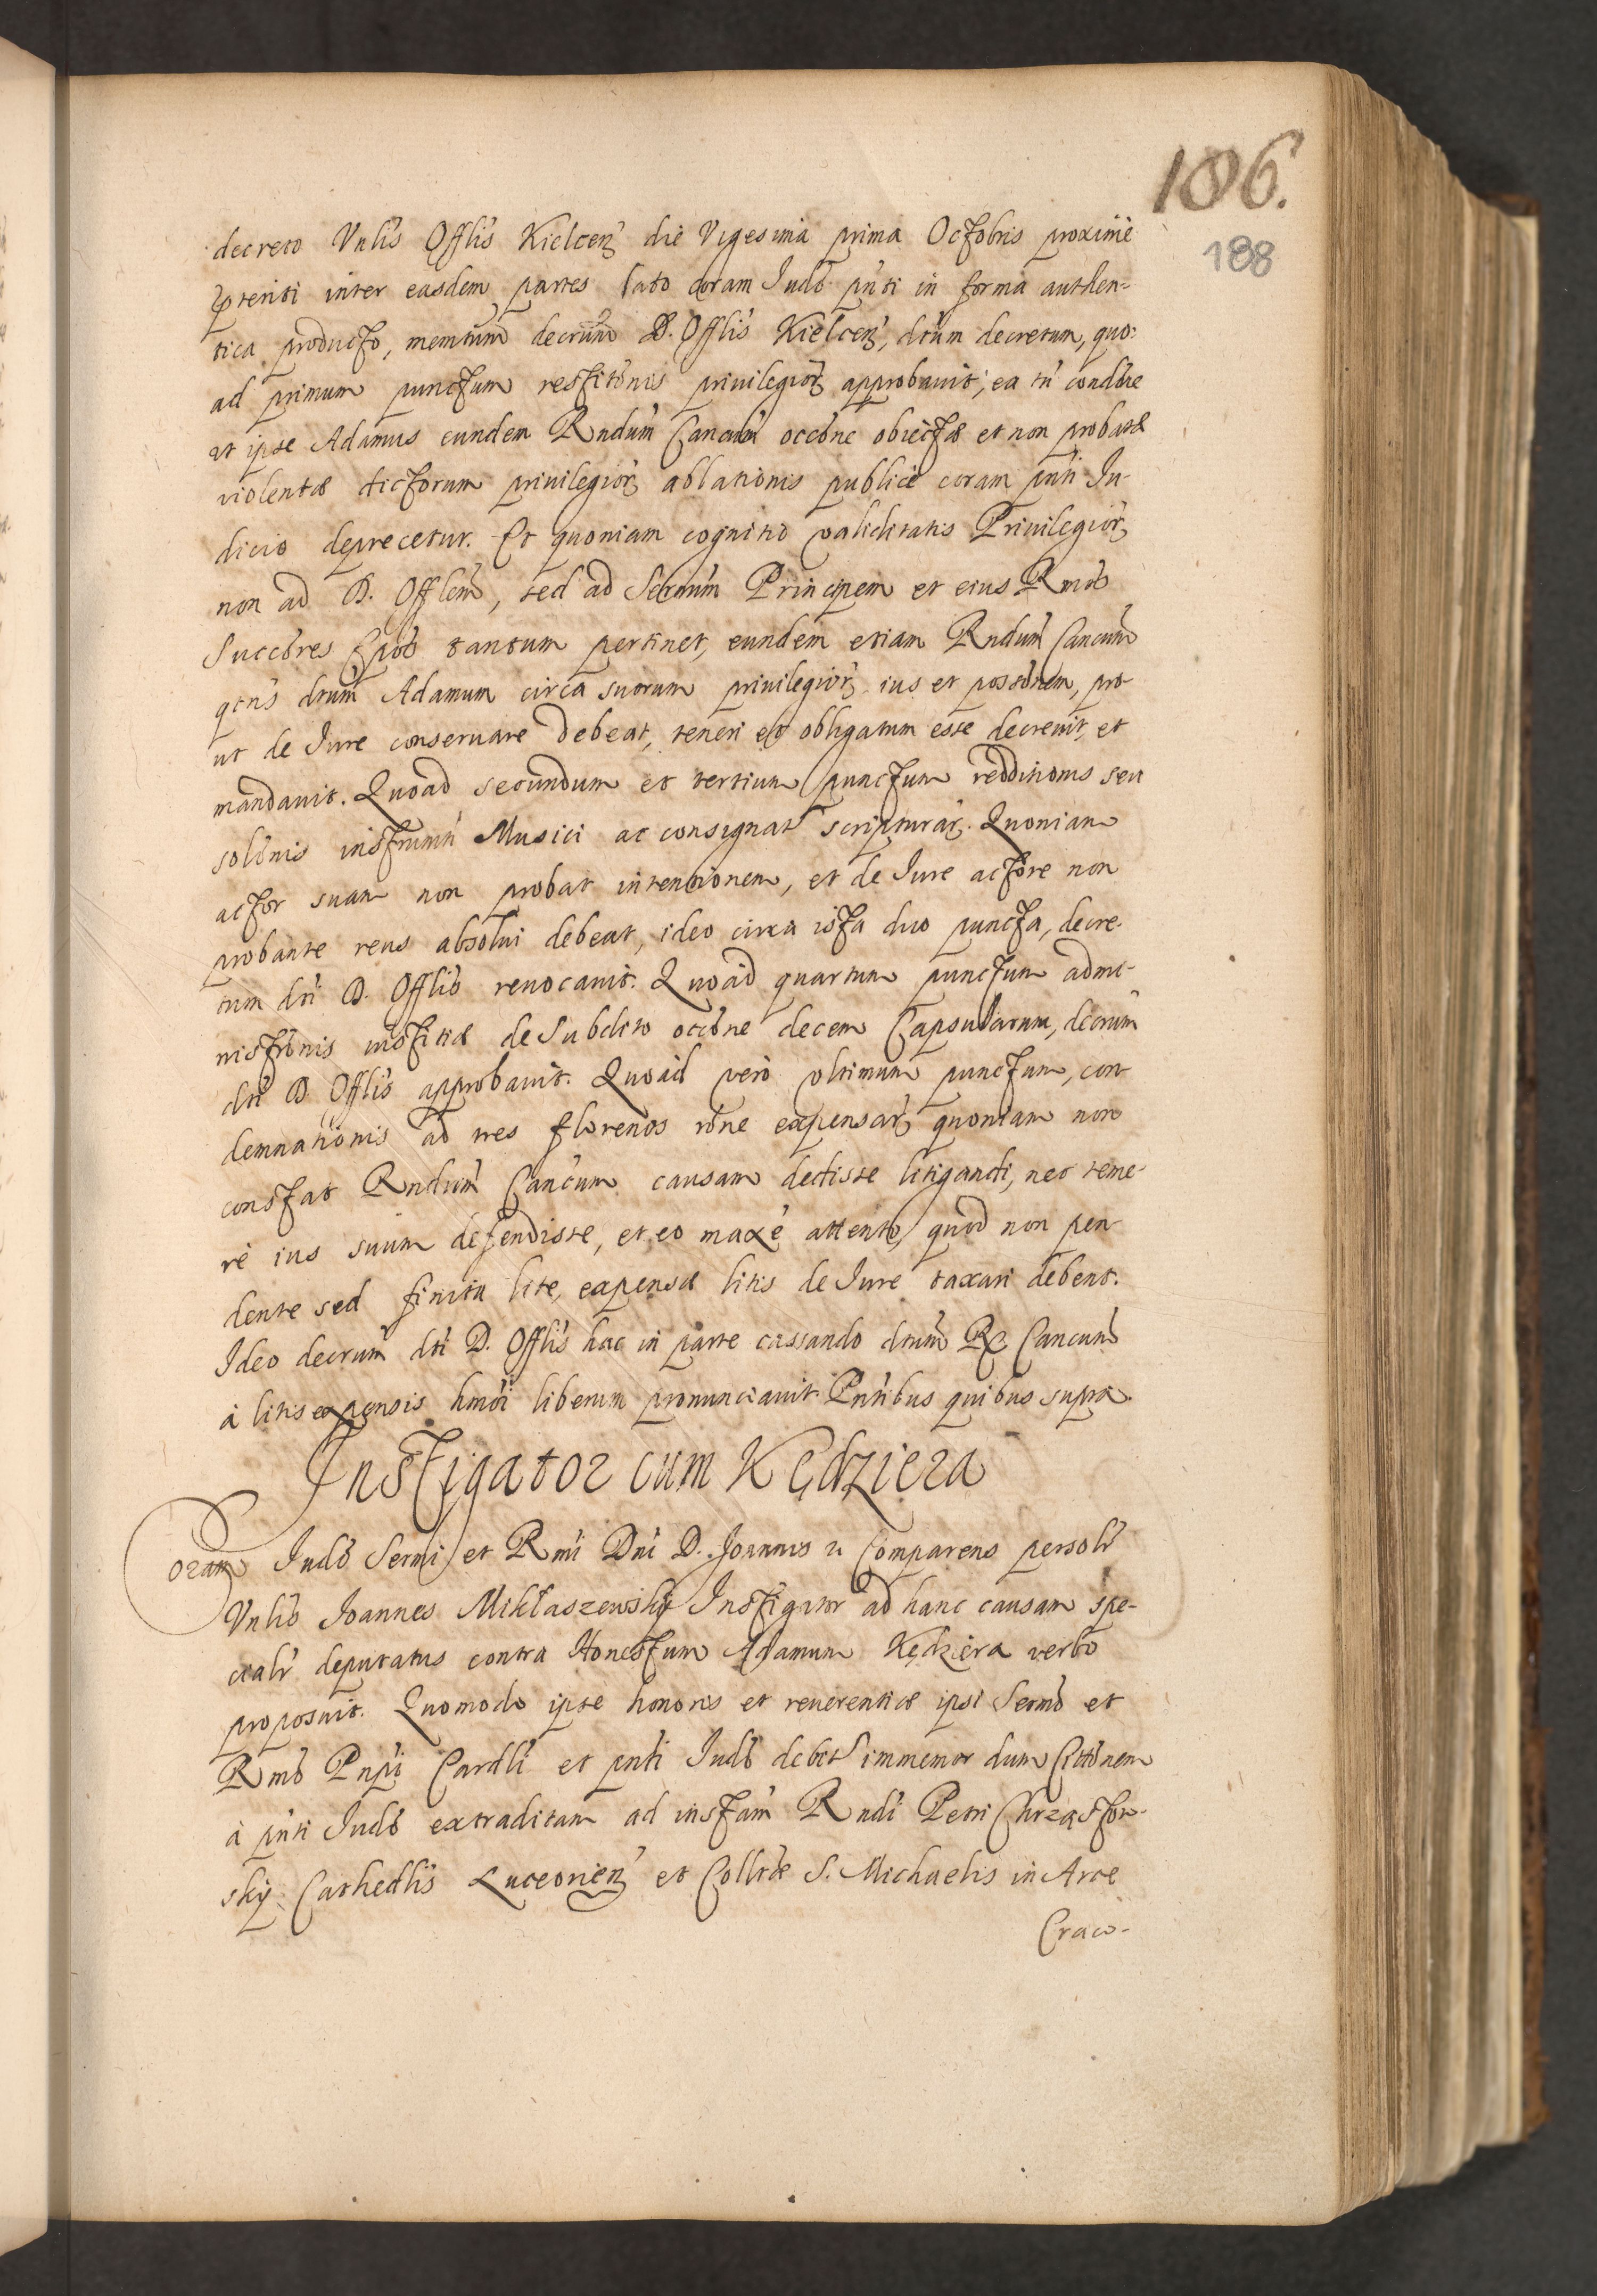 186.
188
decreto Vnlis Offlis Kielcen̄ die Vigesima prima Octobris proximè
p̱teriti inter easdem partes lato coram Judō pn̄ti in forma authen-
tica producto, memtum decrūm D. Offlis Kielcen̄, dtum decretum, quo-
ad primum punctum restitōnis priuilegior̄ approbauit; ea tn̄ condōne
ut ipse Adamus eundem Rndum Cancūm occōne obiectæ et non probatæ
violentæ dictorum priuilegior̄ ablationis publicè coram pn̄ti Iu-
dicio deprecetur. Et quoniam cognitio validitatis Priuilegior̄
non ad D. Offlēm, sed ad Sermūm Principem et eius Rmōs
Succōres Ep̄os tantum pertinet, eundem etiam Rndum Cancūm
dtum Adamum circa suorum priuilegior̄ ius et possōnem, pro-
ut de Jure conseruare debeat, teneri et obligatum esse decreuit, et
mandauit. Quoad secundum et tertium punctum redditionis seu
solōnis instrumn̄ Musici ac consignat scripturar̄. Quoniam
actor suam non probat intentionem, et de Jure actore non
probante reus absolui debeat, ideo circa ista duo puncta, decre-
tum dti D. Offlis reuocauit. Quoad quartum punctum admi-
nistrōnis iustitiæ de Subdito occōne decem Capsularum, decrum
dti D. Offlis approbauit. Quoad verò vltimum punctum, con-
demnationis ad tres florenos rōne expensar̄ quoniam non
constat Rndum Cancūm causam dedisse litigandi, nec teme-
rè ius suum defendisse, et eo maxè attento quòd non pen-
dente sed finita lite, expensæ litis de Jure taxari debent.
Ideo decrum dti D. Offlis hac in parte cassando dtum R. Cancūm
à litis expensis hmōi liberum pronunciauit. Pntibus quibus supra.
Instigator cum Kędziera
Coram Judō Sermi et Rmi Dni D. Joannis &c Comparens persolr
Vnlis Joannes Mikłaszewsky Instigator ad hanc causam spe-
cialr deputatus contra Honestum Adamum Kędziera verbo
proposuit. Quomodo ipse honoris et reuerentiæ ipsi Sermō et
Rmō Pnpi Cardli et pn̄ti Judō debit immemor dum Cittōnem
à pn̄ti Judō extraditam ad instam̄ Rndi Petri Chrząstow-
sky Cathedlis Luceorien̄ et Colltæ S. Michaelis in Arce
Craco-